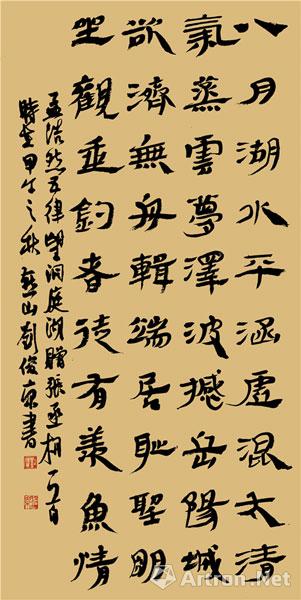 八月湖水平涵虛混太清
氣蒸雲夢澤波撼岳陽城
欲濟無舟輯端居耻聖明
坐觀垂釣者徒有羨魚情
孟浩然五律望洞庭湖贈張丞相一首
時在甲午之秋燕山劉俊京書
Artron.Net